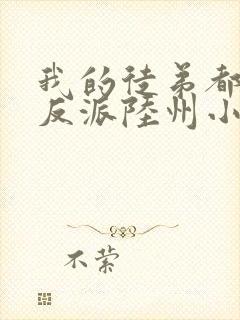 我的徒弟都
反派陸州小
不萦